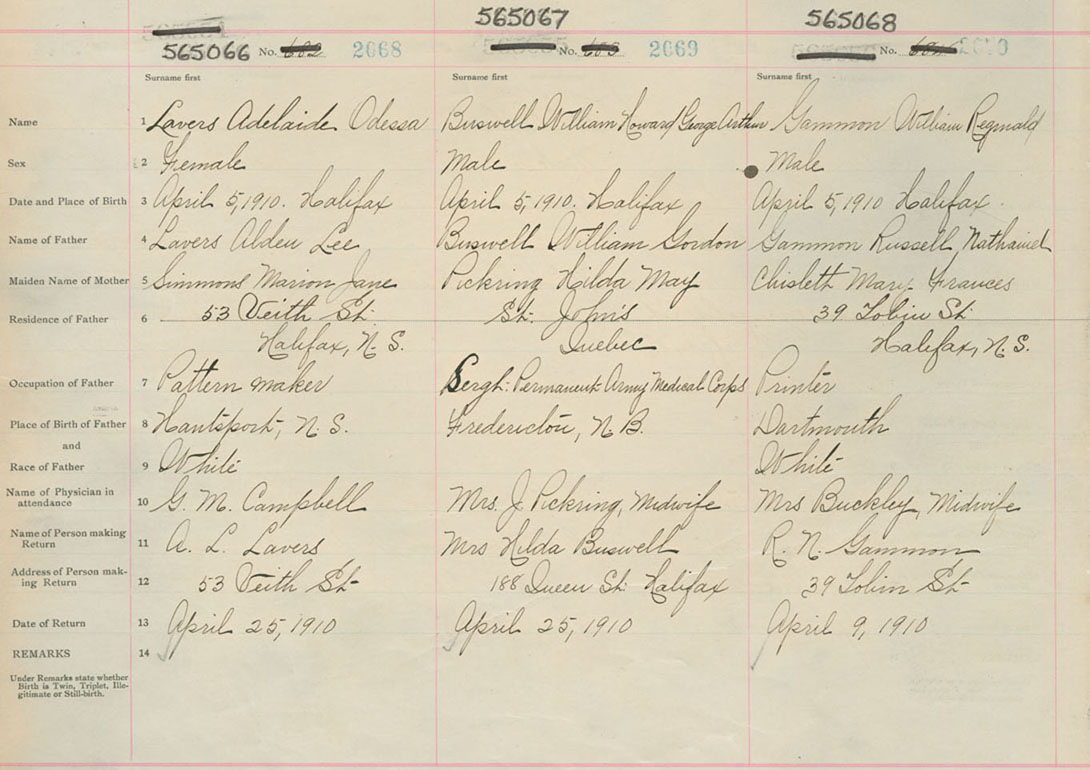 565067 565068
565066 No. 2068 No. 2069 No.
Surname first Surname first Surname first
Name 1 Lavers Adelaide Odessa Buswell William Howard George Arthur Gammon William Reginald
Sex 2 Female Male Male
Date and Place of Birth 3 April 5, 1910. Halifax April 5, 1910. Halifax April 5, 1910 Halifax
Name of Father 4 Lavers Alden Lee Buswell William Gordon Gammon Russell Nathaniel
Maiden Name of Mother 5 Simmons Marion Jane Pickring Hilda May Chisleth Mary Frances
Residence of Father 6 53 Veith St. St. John's 39 Tobin St.
Halifax, N. S. Quebec Halifax, N. S.
Occupation of Father 7 Pattern maker Sergt. Permanent Army Medical Corps Printer
Place of Birth of Father 8 Hantsport, N. S. Fredericton, N. B. Dartmouth
and
Race of Father 9 White White
Name of Physician in
attendance 10 G. M. Campbell Mrs. J. Pickring, Midwife Mrs Buckley, Midwife
Name of Person making
Return 11 A. L. Lavers Mrs Hilda Buswell R. N. Gammon
Address of Person mak-
ing Return 12 53 Veith St. 188 Queen St. Halifax 39 Tobin St.
Date of Return 13 April 25, 1910 April 25, 1910 April 9, 1910
REMARKS 14
Under Remarks state whether
Birth is Twin, Triplet, Ille-
gitimate or Still-birth.